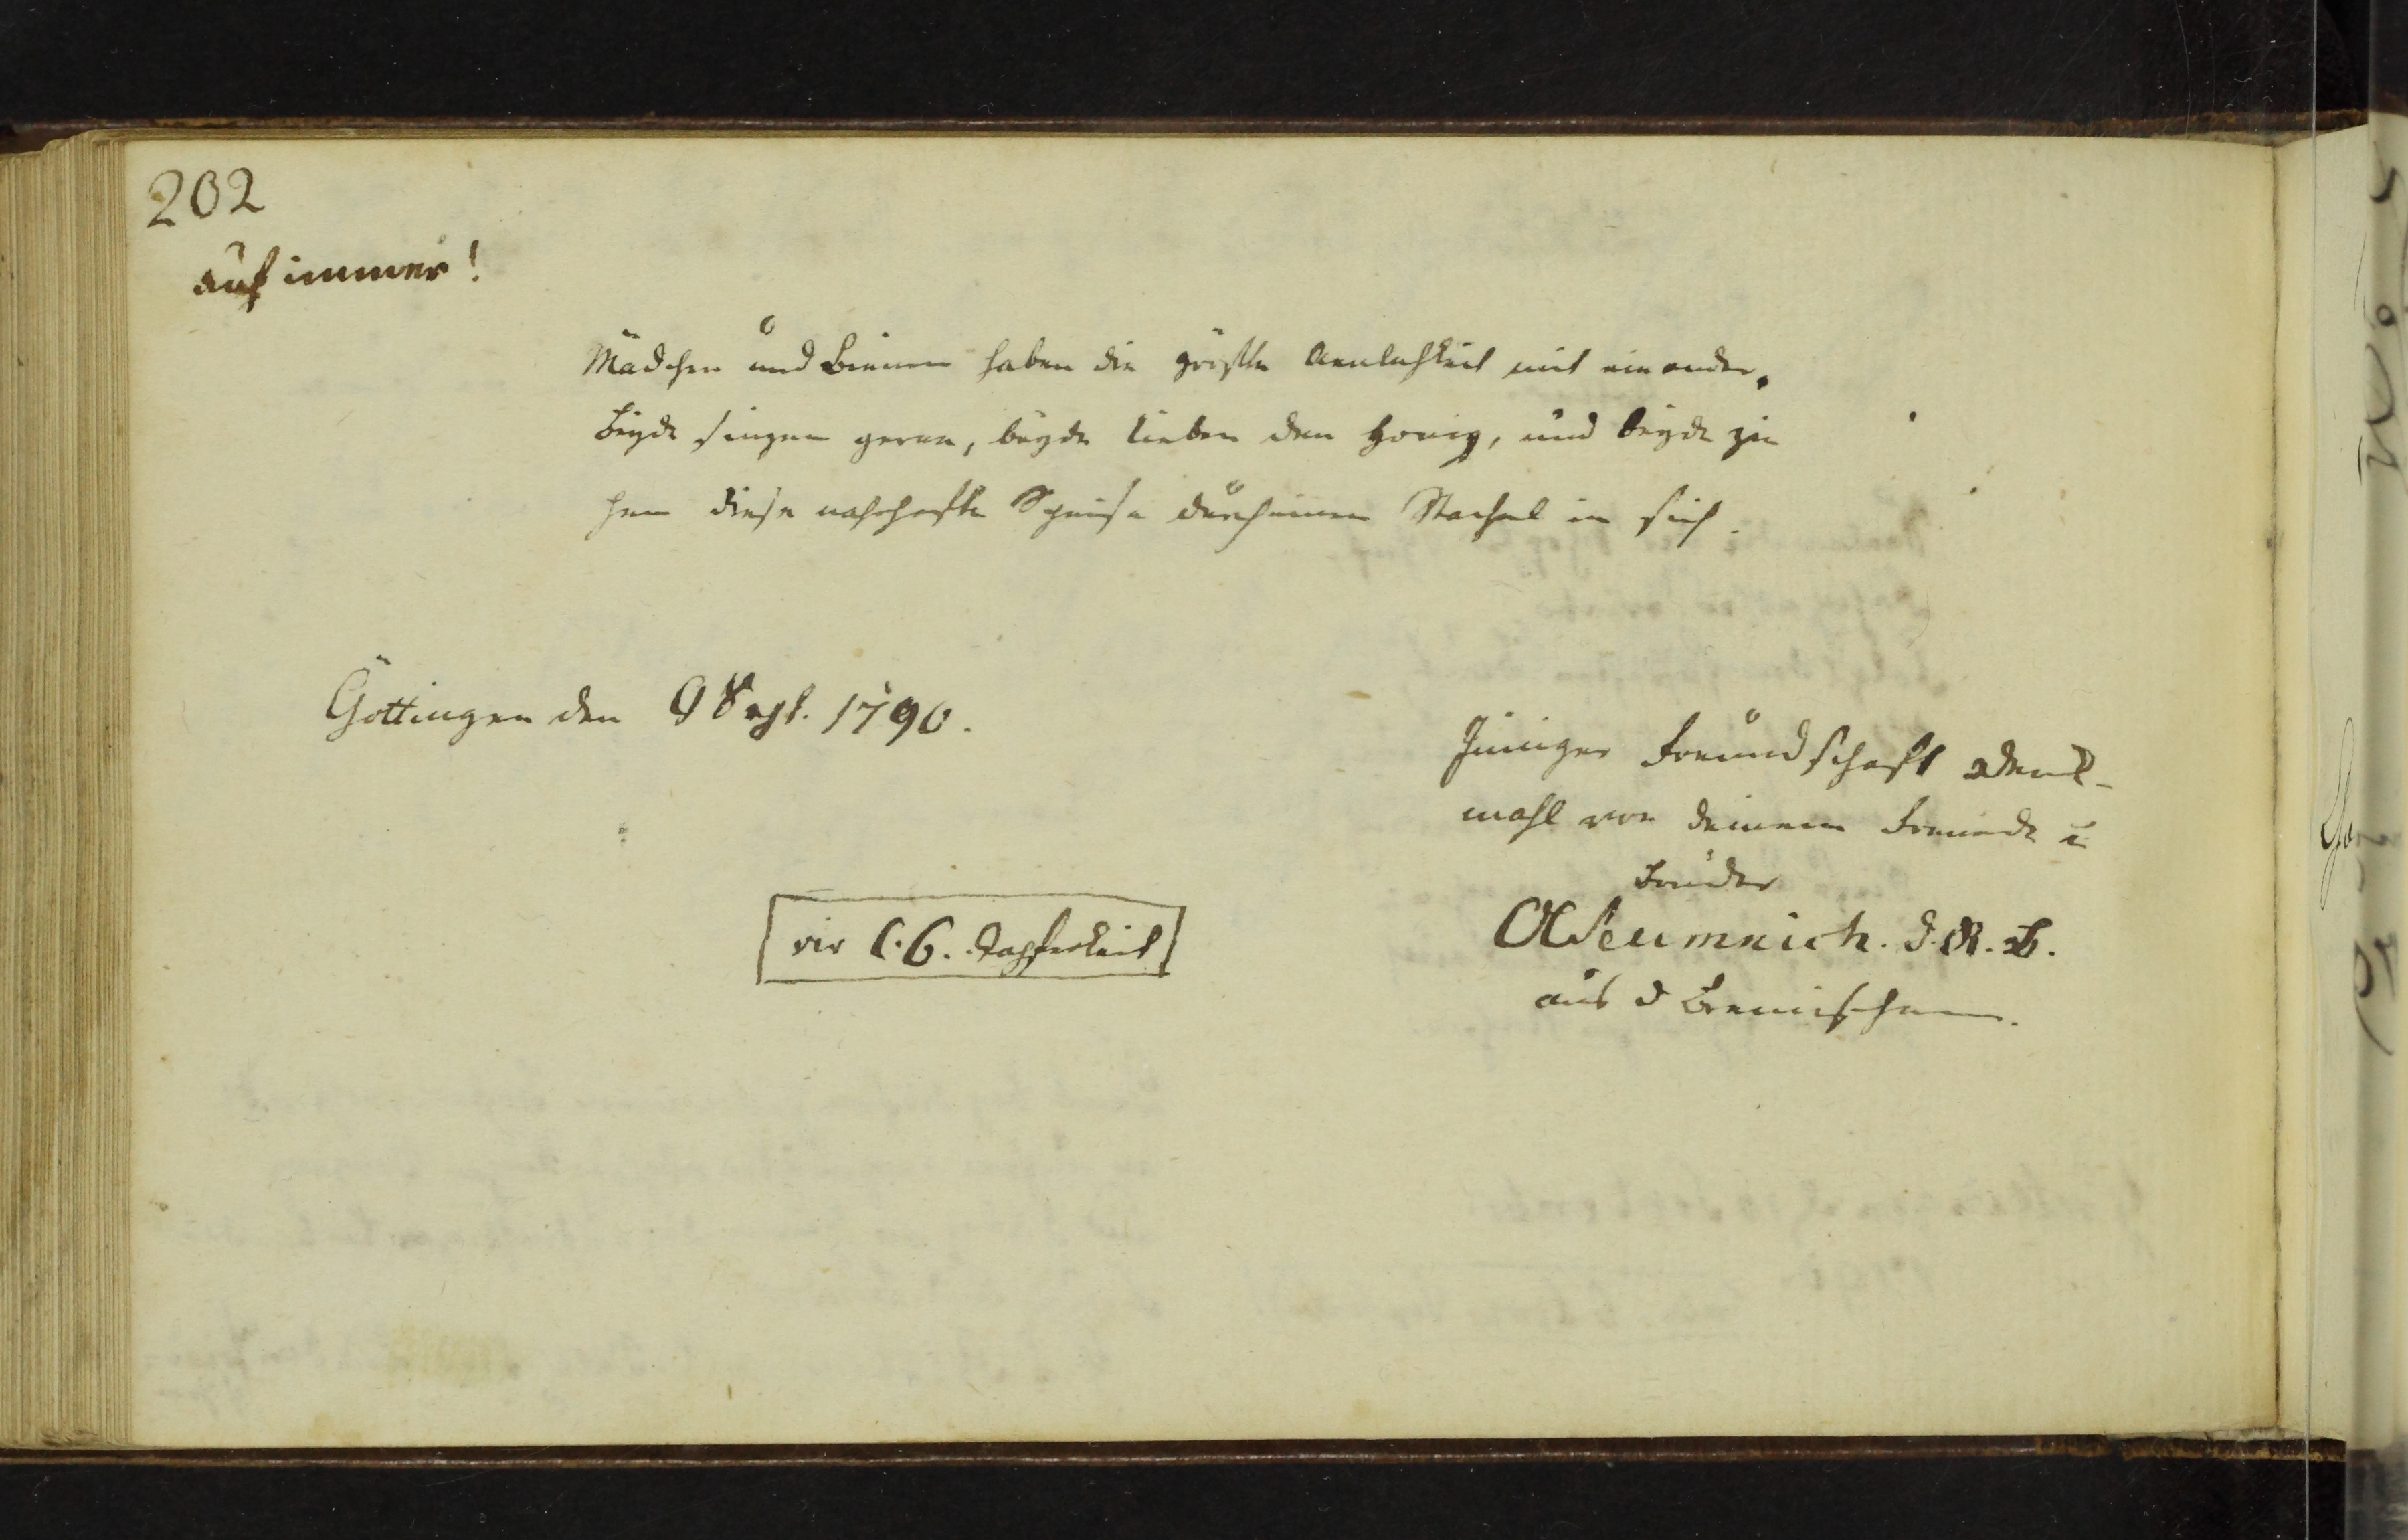 202
auf immer!
Mädchen und Bienen haben die größte Aenlichkeit mit einander.
Beyde singen gerne, beyde lieben den Honig, und beyde zie
hen diese nahrhafte Speise durch einen Stachel in sich.
Göttingen den 9 Sept. 1790.
Inniger Freundschaft Denk-
mahl von deinem Freunde u
Bruder
vis C. G. Tapferkeit
Neumnich. d. R. B.
aus d Bremischen.